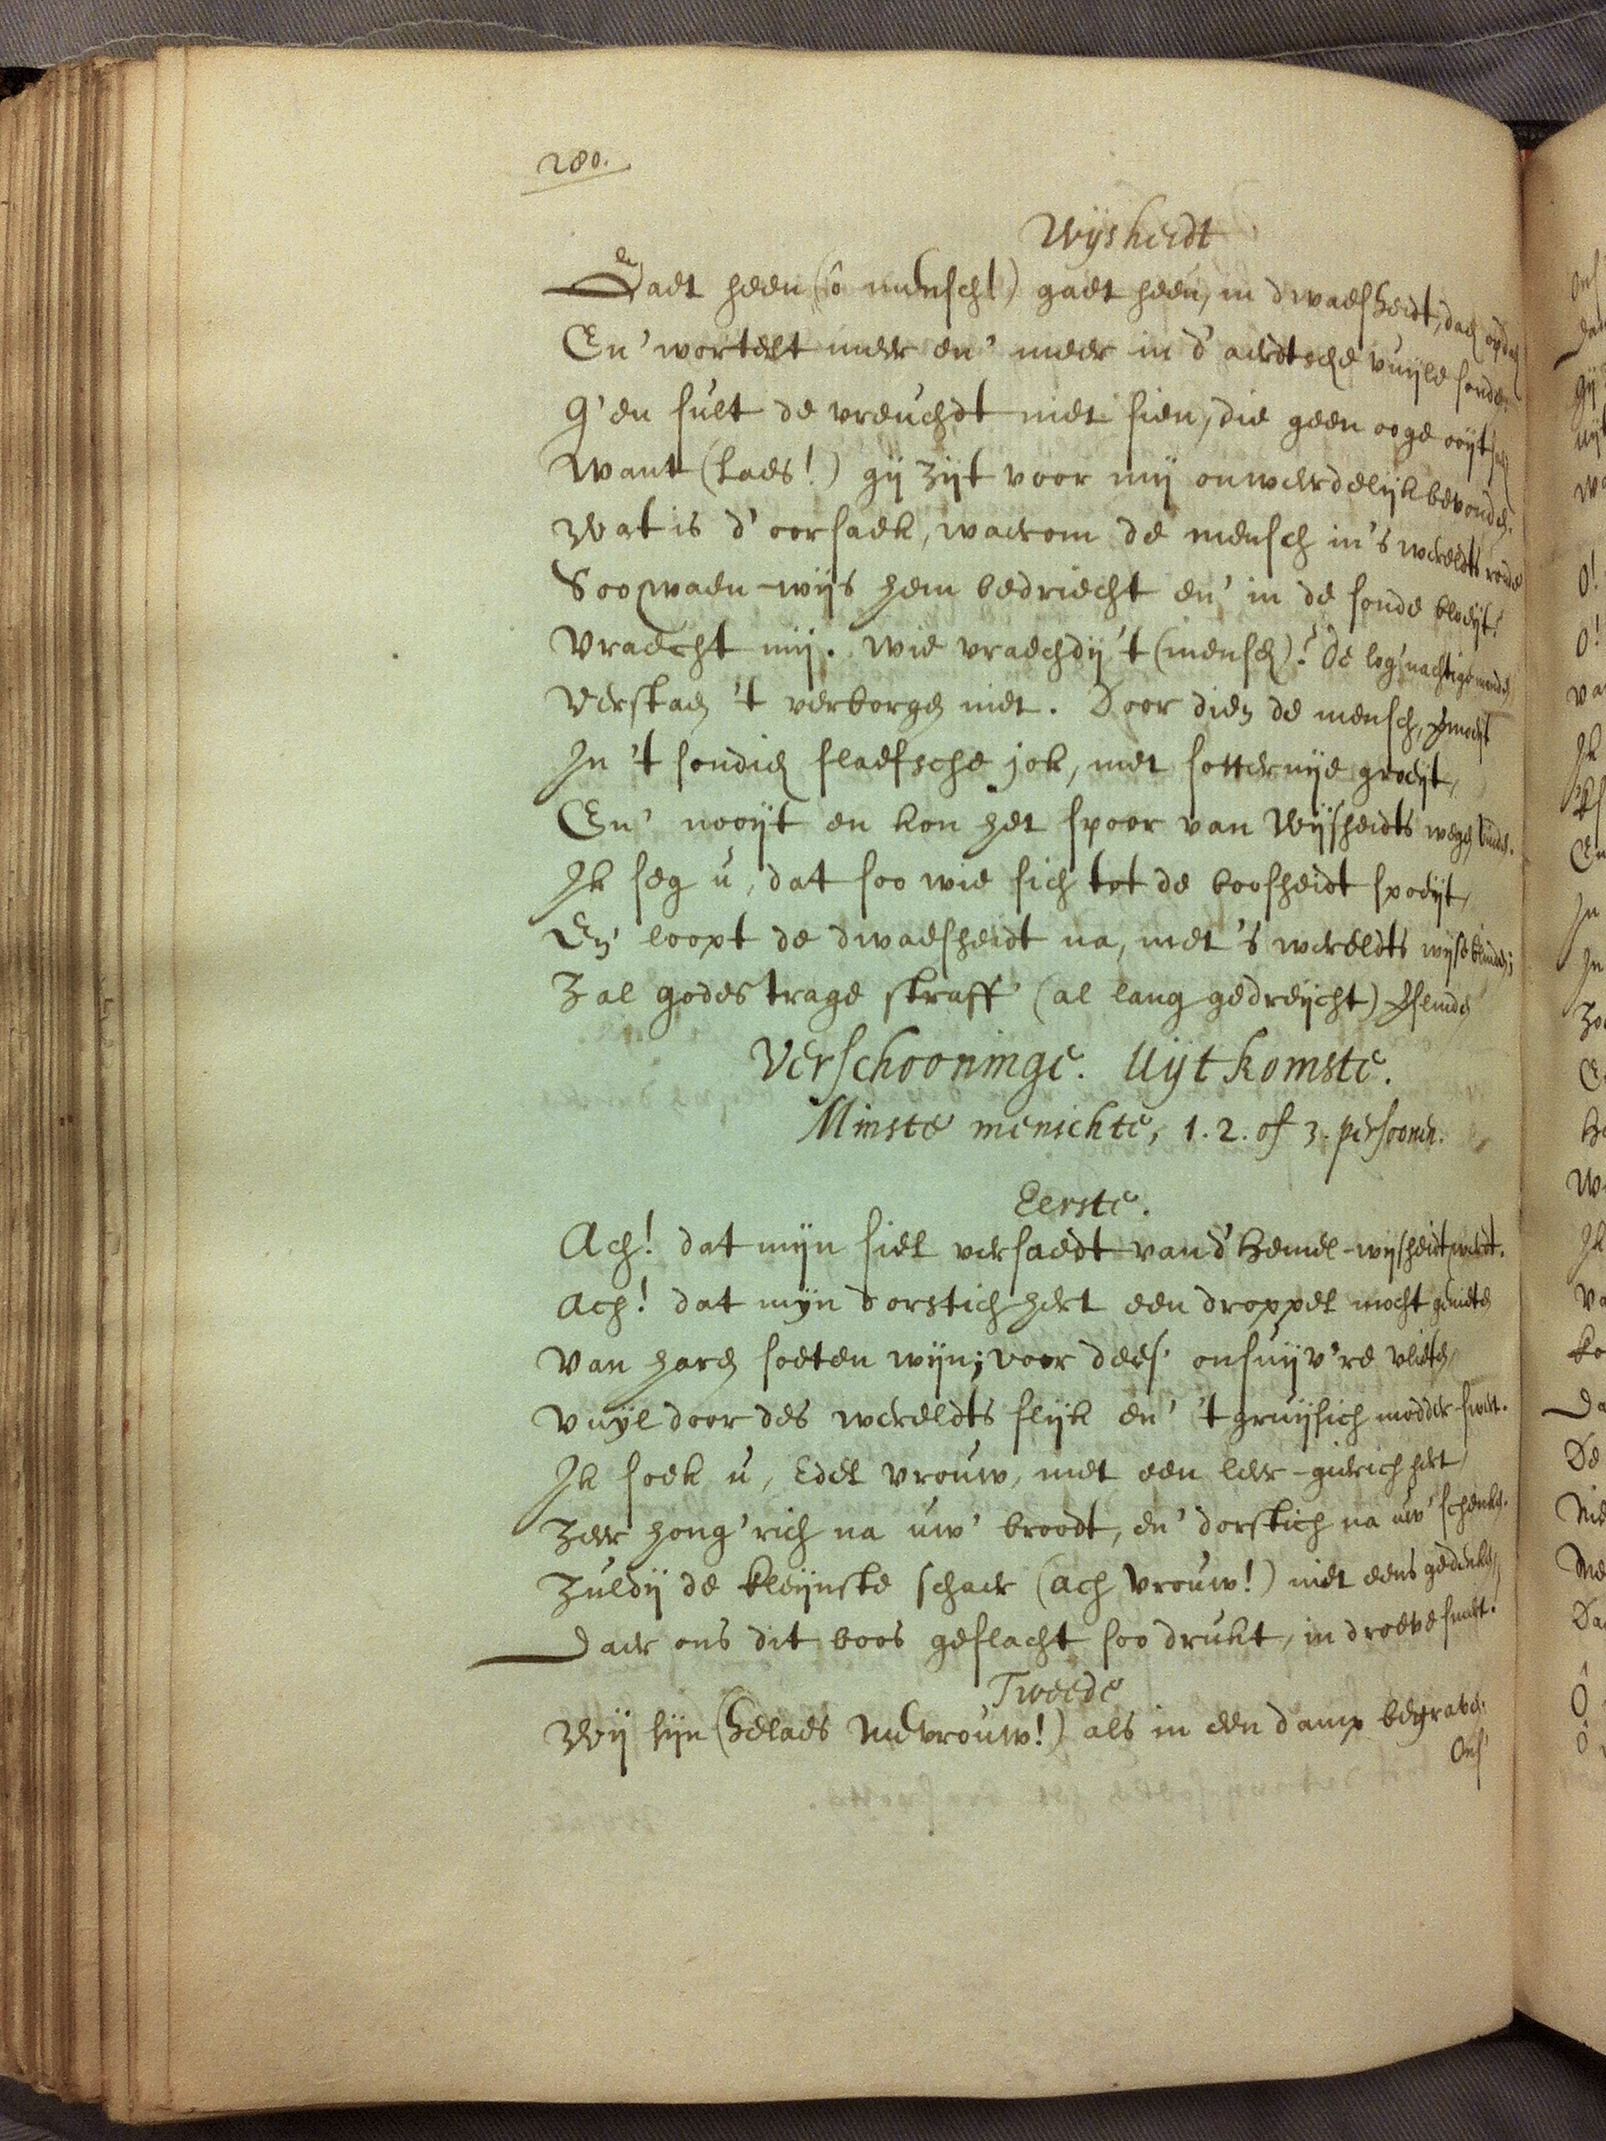 280.
Wijsheidt
Gaet heen (ô mensch!) gaet heen, in dwaesheidt, daer op daer
En' wortelt meer en' meer in d'aerdtsche vuijle sonden.
G'en sult de vreuchdt niet sien, die geen ooge ooijt sach
Want (laes!) gij zijt voor mij onweerdelijk bevonden.
Wat is d'oorsaek, waerom de mensch in's wereldts ronde
Soo waen-wijs hem bedriecht en' in de sonde bloeijt?
Vraecht mij. wie vraechdij 't (mensch)? De log'nachtige monden
Verstaen 't verborgen niet. Door dien de mensch, vermoeijt
In 't sondich slaefsche jok, met sotternije groeijt,
En' nooijt en kon het spoor van Wijsheidts wegen vinden.
Ik seg u, dat soo wie sich tot de boosheidt spoeijt,
En' loopt de dwaesheidt na, met 's wereldts wijse blinden;
Zal godes trage straff' (al lang gedreijcht) verslinden
Verschooninge. Uijtkomste.
Minste menichte, 1. 2. of 3. persoonen.
Eerste.
Ach! dat mijn siel versaedt van d'Hemel-wijsheidt werdt.
Ach! dat mijn dorstich hert een droppel mocht genieten
Van haren soeten wijn; voor dees' onsuijv're vlieten,
Vuijl door des wereldts slijk en' 't gruijsich modder-swert.
Ik soek u, Edel vrouw, met een leer-gierich hert,
Zeer hong'rich na uw' broodt, en' dorstich na uw' schenken.
Zuldij de kleijnste schaer (ach Vrouw!) niet eens gedenken,
Daer ons dit boos geslacht soo drukt, in droeve smert.
Tweede
Wij sijn (helaes Mevrouw!) als in een damp begraven.
Ons'